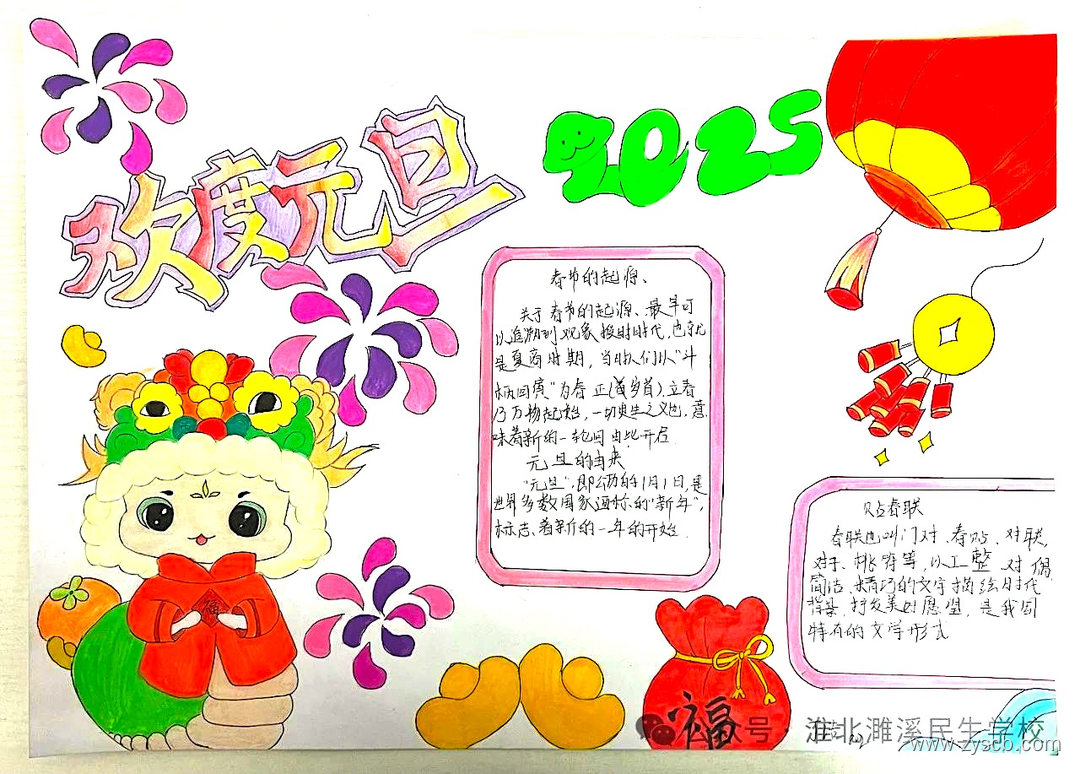 欢度元旦
2025
春节的起源、
关于春节的起源、最早可
以追溯到观象授时时代，也就
是夏商时期，当时人们以“斗
柄回寅”为春正(或岁首)，立春
乃万物起始，一切更生之义也，意
味着新的一轮回由此开启
元旦的由来
“元旦”，即公历的1月1日，是
世界多数国家通称的“新年”，
标志着新的一年的开始
贴春联
春联也叫门对、春贴、对联，
对子、桃符等，以工整 对偶
简洁、精巧的文字描绘时代
背景、抒发美好愿望，是我国
特有的文学形式
福
福
号·淮北濉溪民生学校
www.zyscb.com